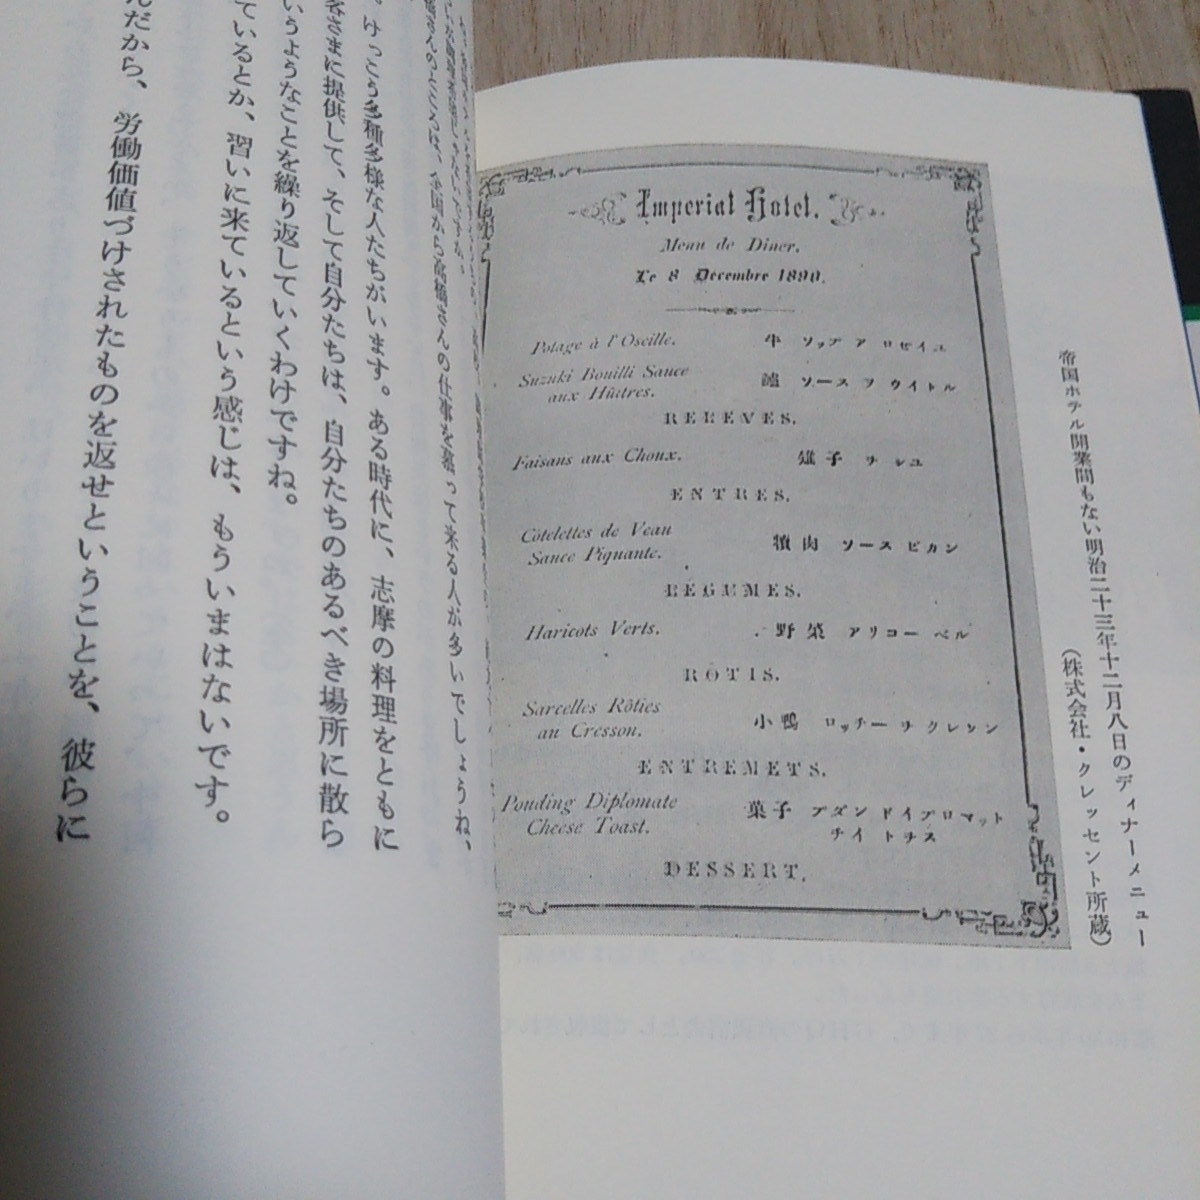 帝国ホテル開業間もない明治二十三年十二月八日のディナーメニュー
(株式会社・クレッセント所蔵)
Imperial Hotel.
Menu de Diner.
Le 8 Decembre 1890.
Potage à l'Oseille. 牛 ソップ ア ロゼイユ
Suzuki Bouilli Sauce
aux Huîtres. 鱸 ソース ヲ ウイトル
REREVES.
Faisans aux Choux. 雉子 ヲ シユ
ENTRES.
Côtelettes de Veau
Sauce Piquante. 犢肉 ソース ピカン
REGUMES.
Haricots Verts. 野菜 アリコー ベル
ROTIS.
Sarcelles Rôties
au Cresson. 小鴨 ロッチー ヲ クレソン
ENTREMETS.
Pouding Diplomate 菓子 プダン ドイプロマット
Cheese Toast. チイ トヲス
DESSERT.
国から高橋さんの仕事を慕って来る人が多いでしょうね、
。けっこう多種多様な人たちがいます。ある時代に、志摩の料理をともに
さまに提供して、そして自分たちは、自分たちのあるべき場所に散ら
いうようなことを繰り返していくわけですね。
ているとか、習いに来ているという感じは、もういまはないです。
んだから、労働価値づけされたものを返せということを、彼らに